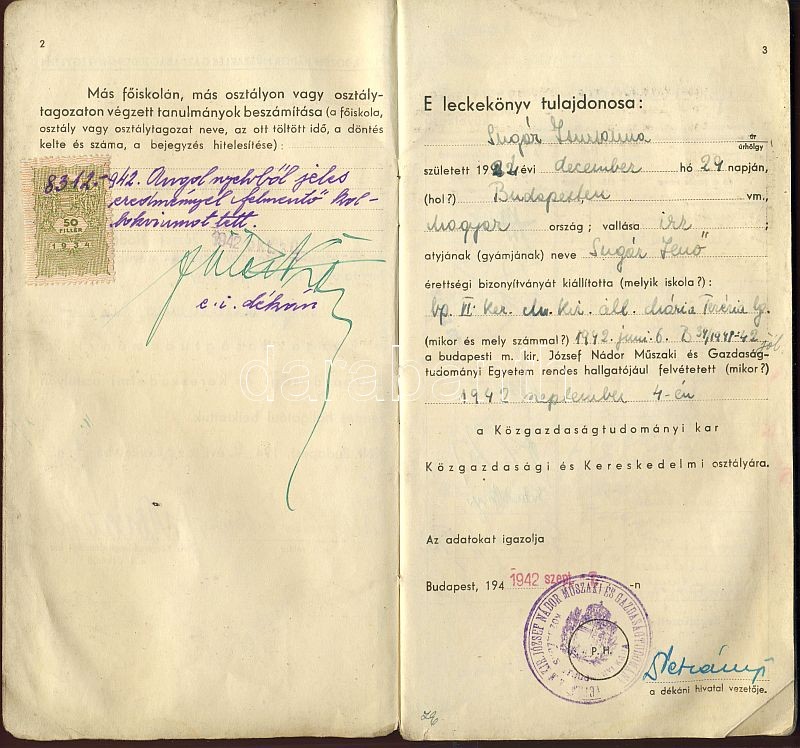 2
Más főiskolán, más osztályon vagy osztály-
tagozaton végzett tanulmányok beszámítása (a főiskola,
osztály vagy osztálytagozat neve, az ott töltött idő, a döntés
kelte és száma, a bejegyzés hitelesítése):
8312.-942. Angol nyelvből jeles
eredménnyel felmentő kol-
lokviumot tett.
50
FILLÉR
1934
1942
e. i. dékán
3
E leckekönyv tulajdonosa:
Sugár
úr
úrhölgy
született 1924 évi december hó 29 napján,
(hol?) Budapesten vm.,
Magyar ország; vallása izr
atyjának (gyámjának) neve Sugár Jenő
érettségi bizonyítványát kiállította (melyik iskola?):
bp. VI. ker. m. kir. áll. Mária Terézia lg.
(mikor és mely számmal?) 1942. juni. 6.
a budapesti m. kir. József Nádor Műszaki és Gazdaság-
tudományi Egyetem rendes hallgatójául felvétetett (mikor?)
1942 szeptember 4-én
a Közgazdaságtudományi kar
Közgazdasági és Kereskedelmi osztályára.
Az adatokat igazolja
Budapest, 194 1942 szept. -n
M. KIR. JÓZSEF NÁDOR MŰSZAKI ÉS GAZDASÁGTUDOMÁNYI
P. H.
a dékáni hivatal vezetője.
darabanth